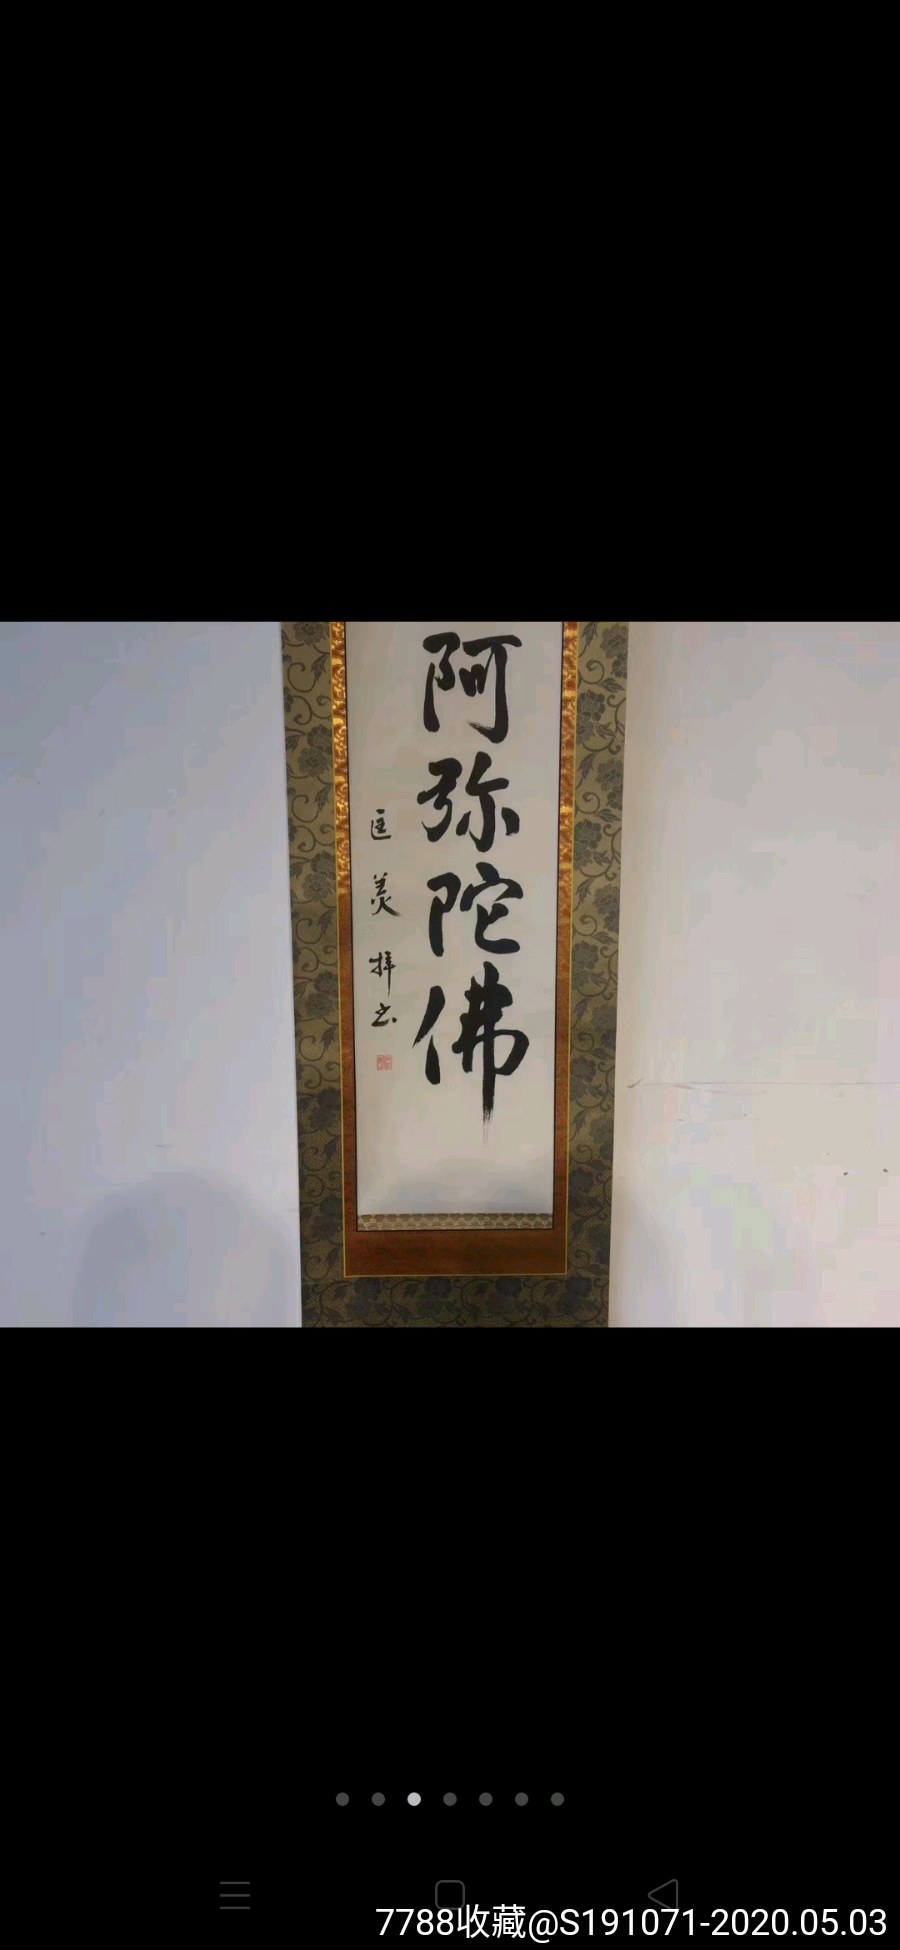 阿弥陀佛
匡羙拝书
7788收藏@S191071-2020.05.03